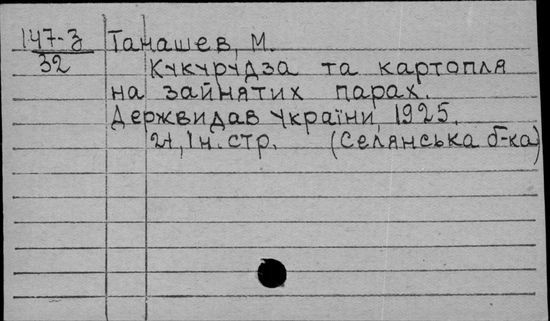 147-з Танашев, М.
32 Кукурудза та картопля
на зайнятих парах.
Держвидав України, 1925.
21, 1 н. стр. (Селянська б-ка)